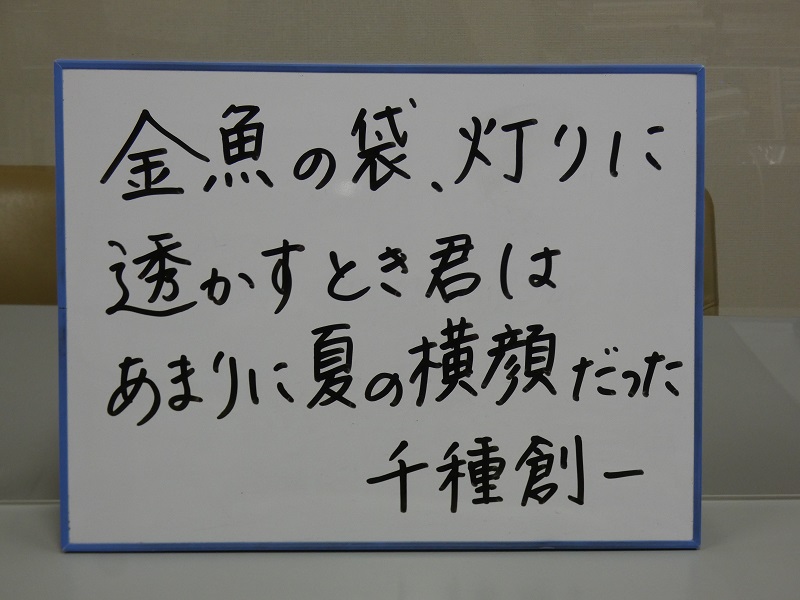 金魚の袋、灯りに
透かすとき君は
あまりに夏の横顔だった
千種創一